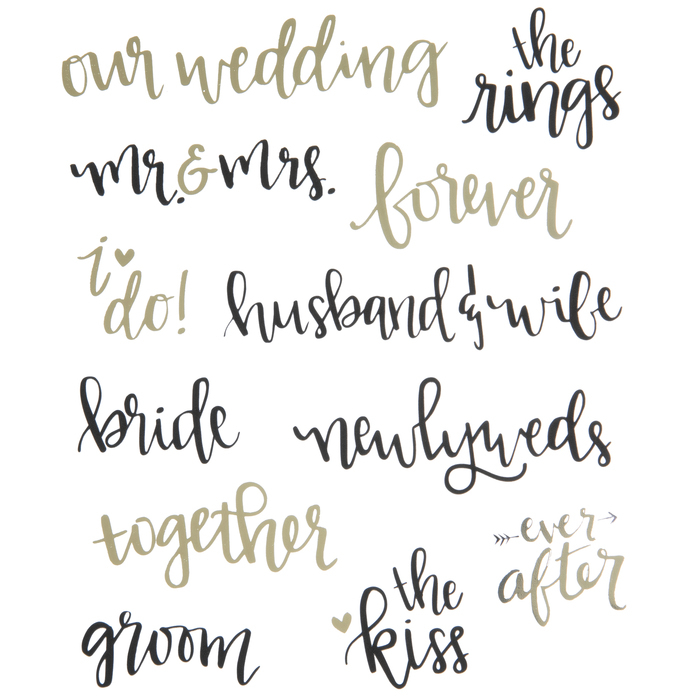 our wedding
the
rings
mr. & mrs.
forever
i
do!
husband & wife
bride
newlyweds
together
ever
after
the
kiss
groom